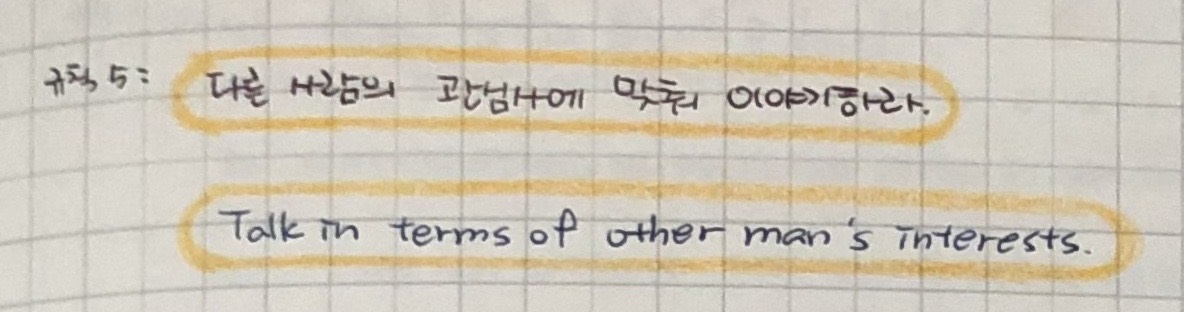 규칙 5: 다른 사람의 관심사에 맞춰 이야기하라.
Talk in terms of other man's interests.